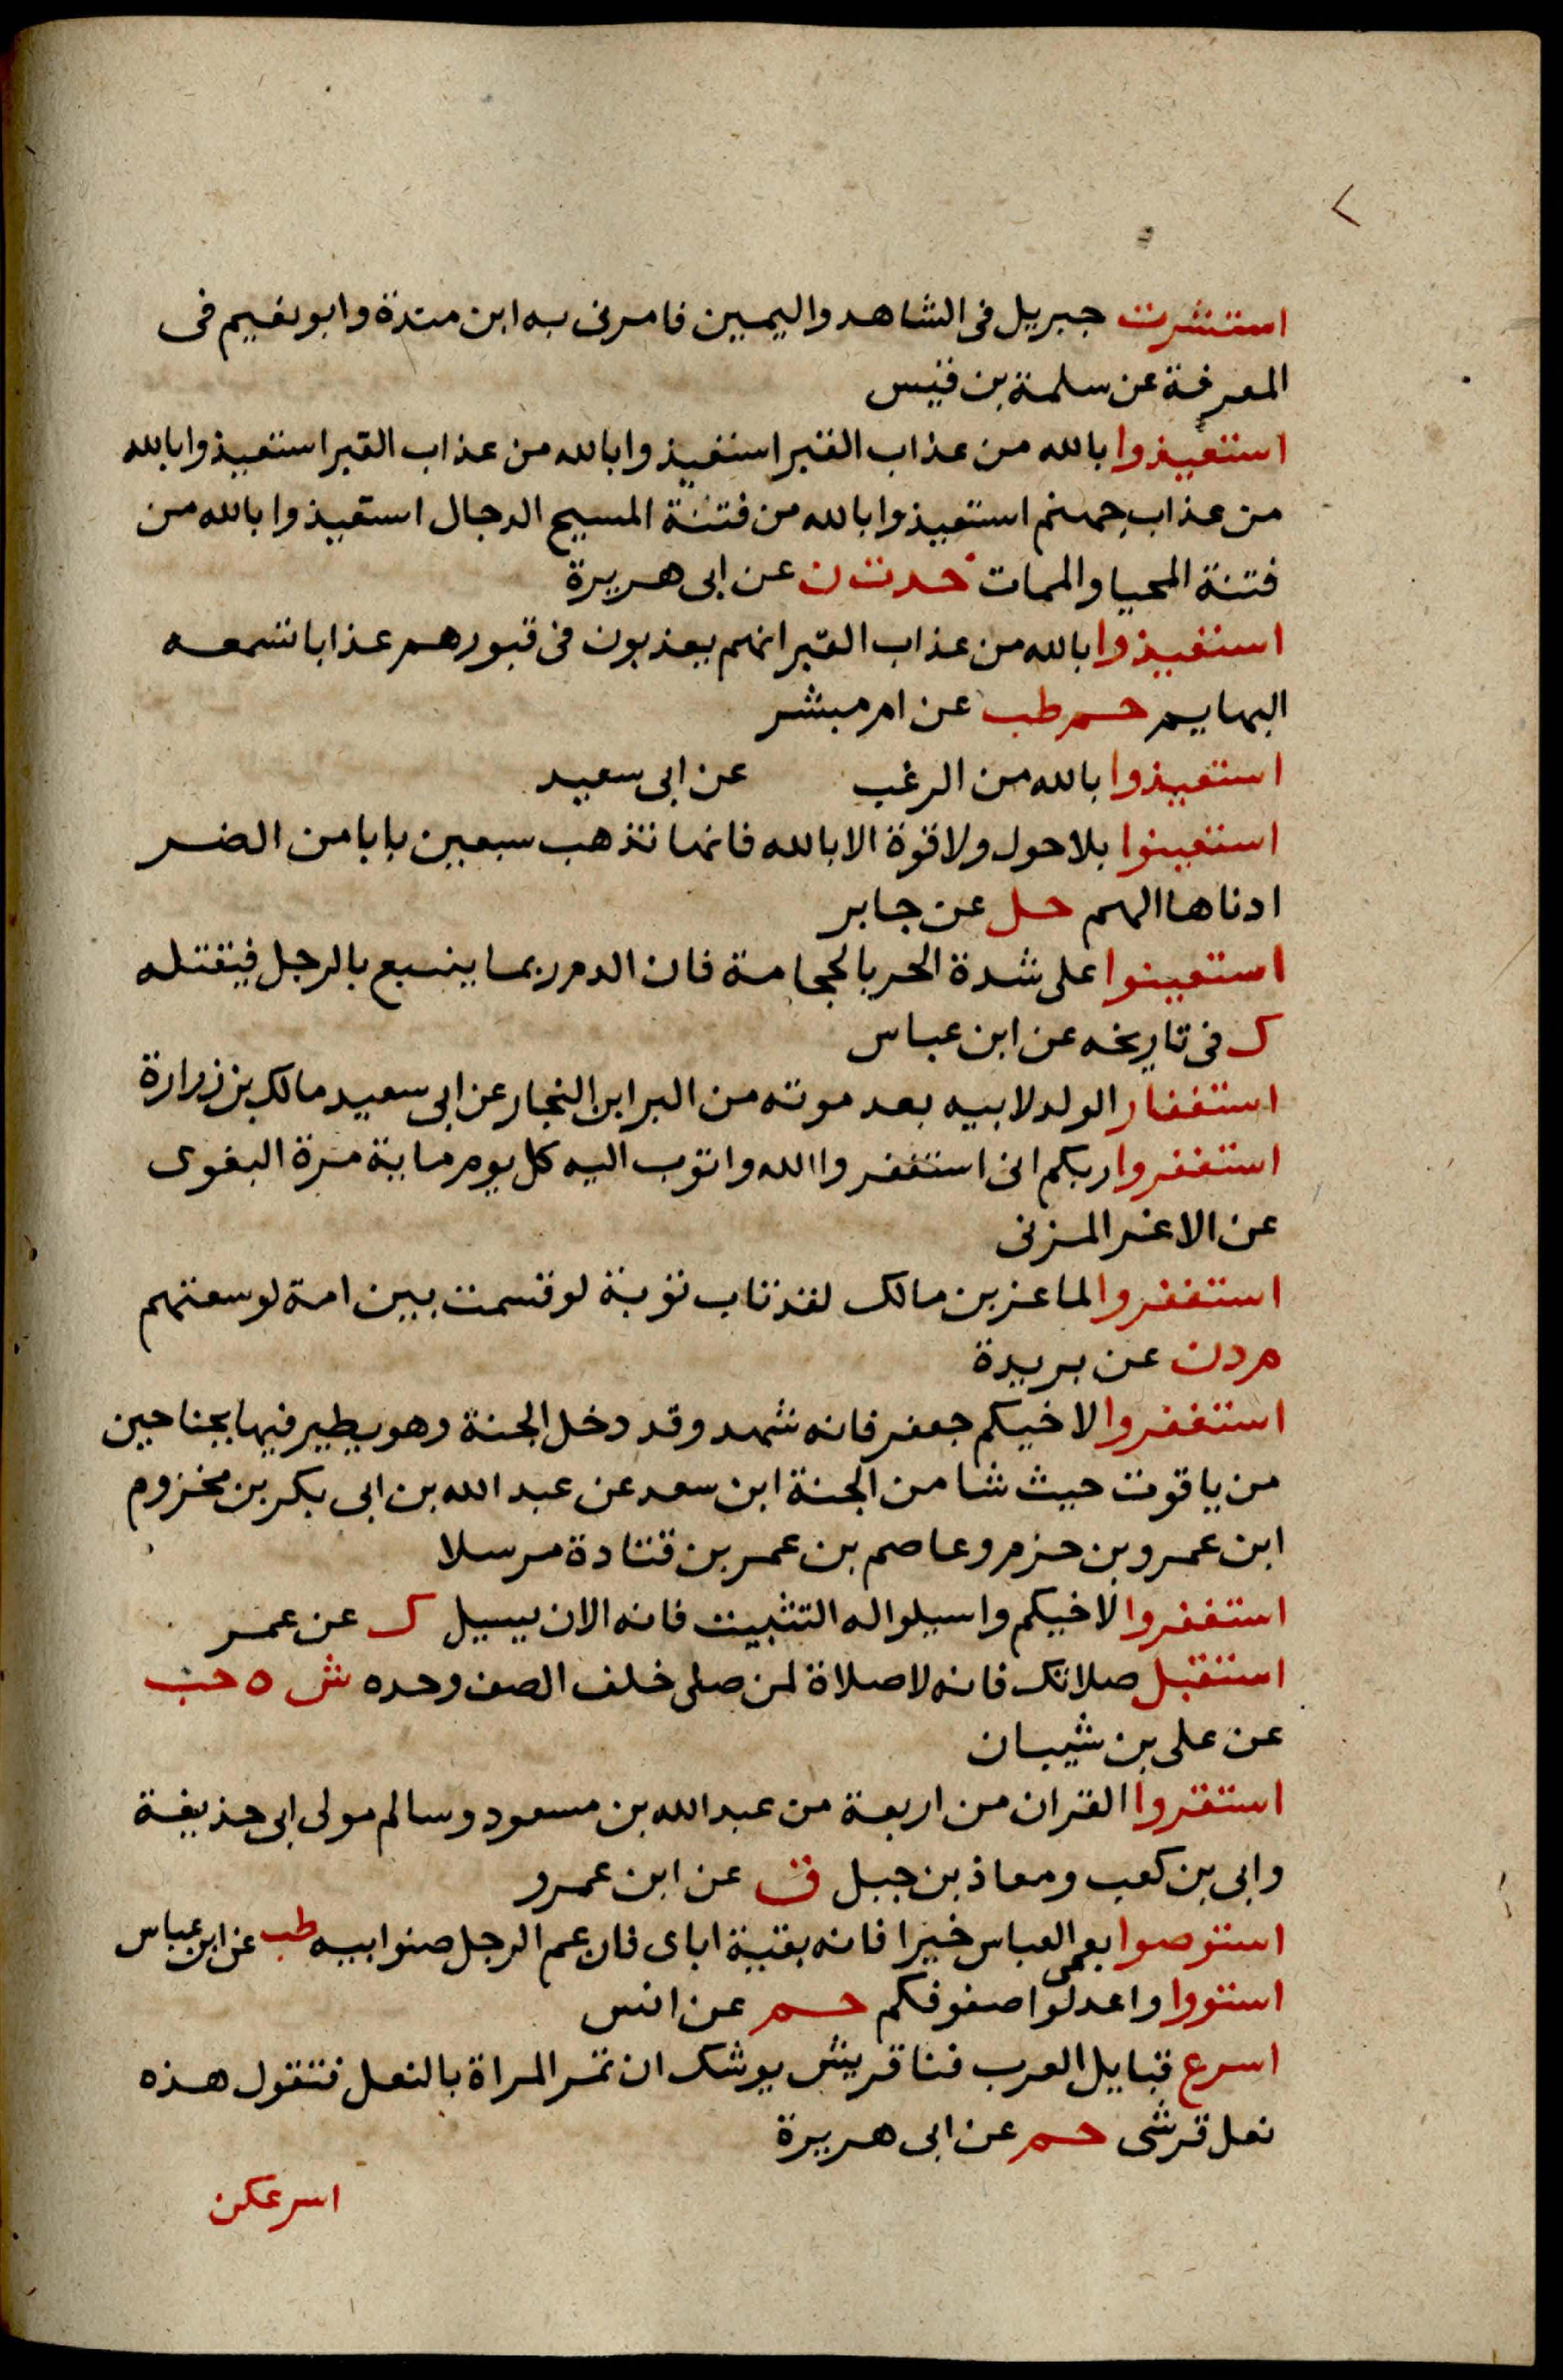 استشرت جبريل فى الشاهد واليمين فامرنى به ابن مندة وابو نعيم فى
المعرفة عن سلمة بن قيس
استعيذوا بالله من عذاب القبر استعيذوا بالله من عذاب القبر استعيذوا بالله
من عذاب جهنم استعيذوا بالله من فتنة المسيح الدجال استعيذوا بالله من
فتنة المحيا والممات خدت ن عن ابى هريرة
استعيذوا بالله من عذاب القبر انهم يعذبون فى قبورهم عذابا تسمعه
البهايم حم طب عن ام مبشر
استعيذوا بالله من الرغب عن ابى سعيد
استعينوا بلا حول ولا قوة الا بالله فانها تذهب سبعين بابا من الضر
ادناها الهم حل عن جابر
استعينوا على شدة الحر بالحجامة فان الدم ربما ينبيع بالرجل فيقتله
ك فى تاريخه عن ابن عباس
استغفار الولد لابيه بعد موته من البر ابن النجار عن ابى سعيد مالك بن زرارة
استغفروا ربكم انى استغفروا الله واتوب اليه كل يوم ماية مرة البغوى
عن الاغر المزنى
استغفروا لماعز بن مالك لقد تاب توبة لو قسمت بين امة لوسعتهم
م د ن عن بريدة
استغفروا لاخيكم جعفر فانه شهد وقد دخل الجنة وهو يطير فيها بجناحين
من ياقوت حيث شا من الجنة ابن سعد عن عبد الله بن ابى بكر بن مخزوم
ابن عمرو بن حزم وعاصم بن عمر بن قتادة مرسلا
استغفروا لاخيكم واسيلوا له التثبيت فانه الان يسيل ك عن عمر
استقبل صلاتك فانه لا صلاة لمن صلى خلف الصف وحده ش ه حب
عن على بن شيبان
استقروا القران من اربعة من عبد الله بن مسعود وسالم مولى ابى حذيفة
وابى بن كعب ومعاذ بن جبل ق عن ابن عمرو
استوصوا بعمى العباس خيرا فانه بقية اباى فان عم الرجل صنو ابيه طب عن ابن عباس
استووا واعدلوا صفوفكم حم عن انس
اسرع قبايل العرب فنا قريش يوشك ان تمر المراة بالنعل فتقول هذه
نعل قرشى حم عن ابى هريرة
اسرعكن